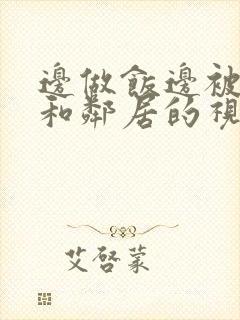 邊做飯邊被
和鄰居的視
艾啓蒙